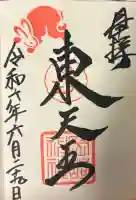 奉拝
東天王
令和 年六月二 日